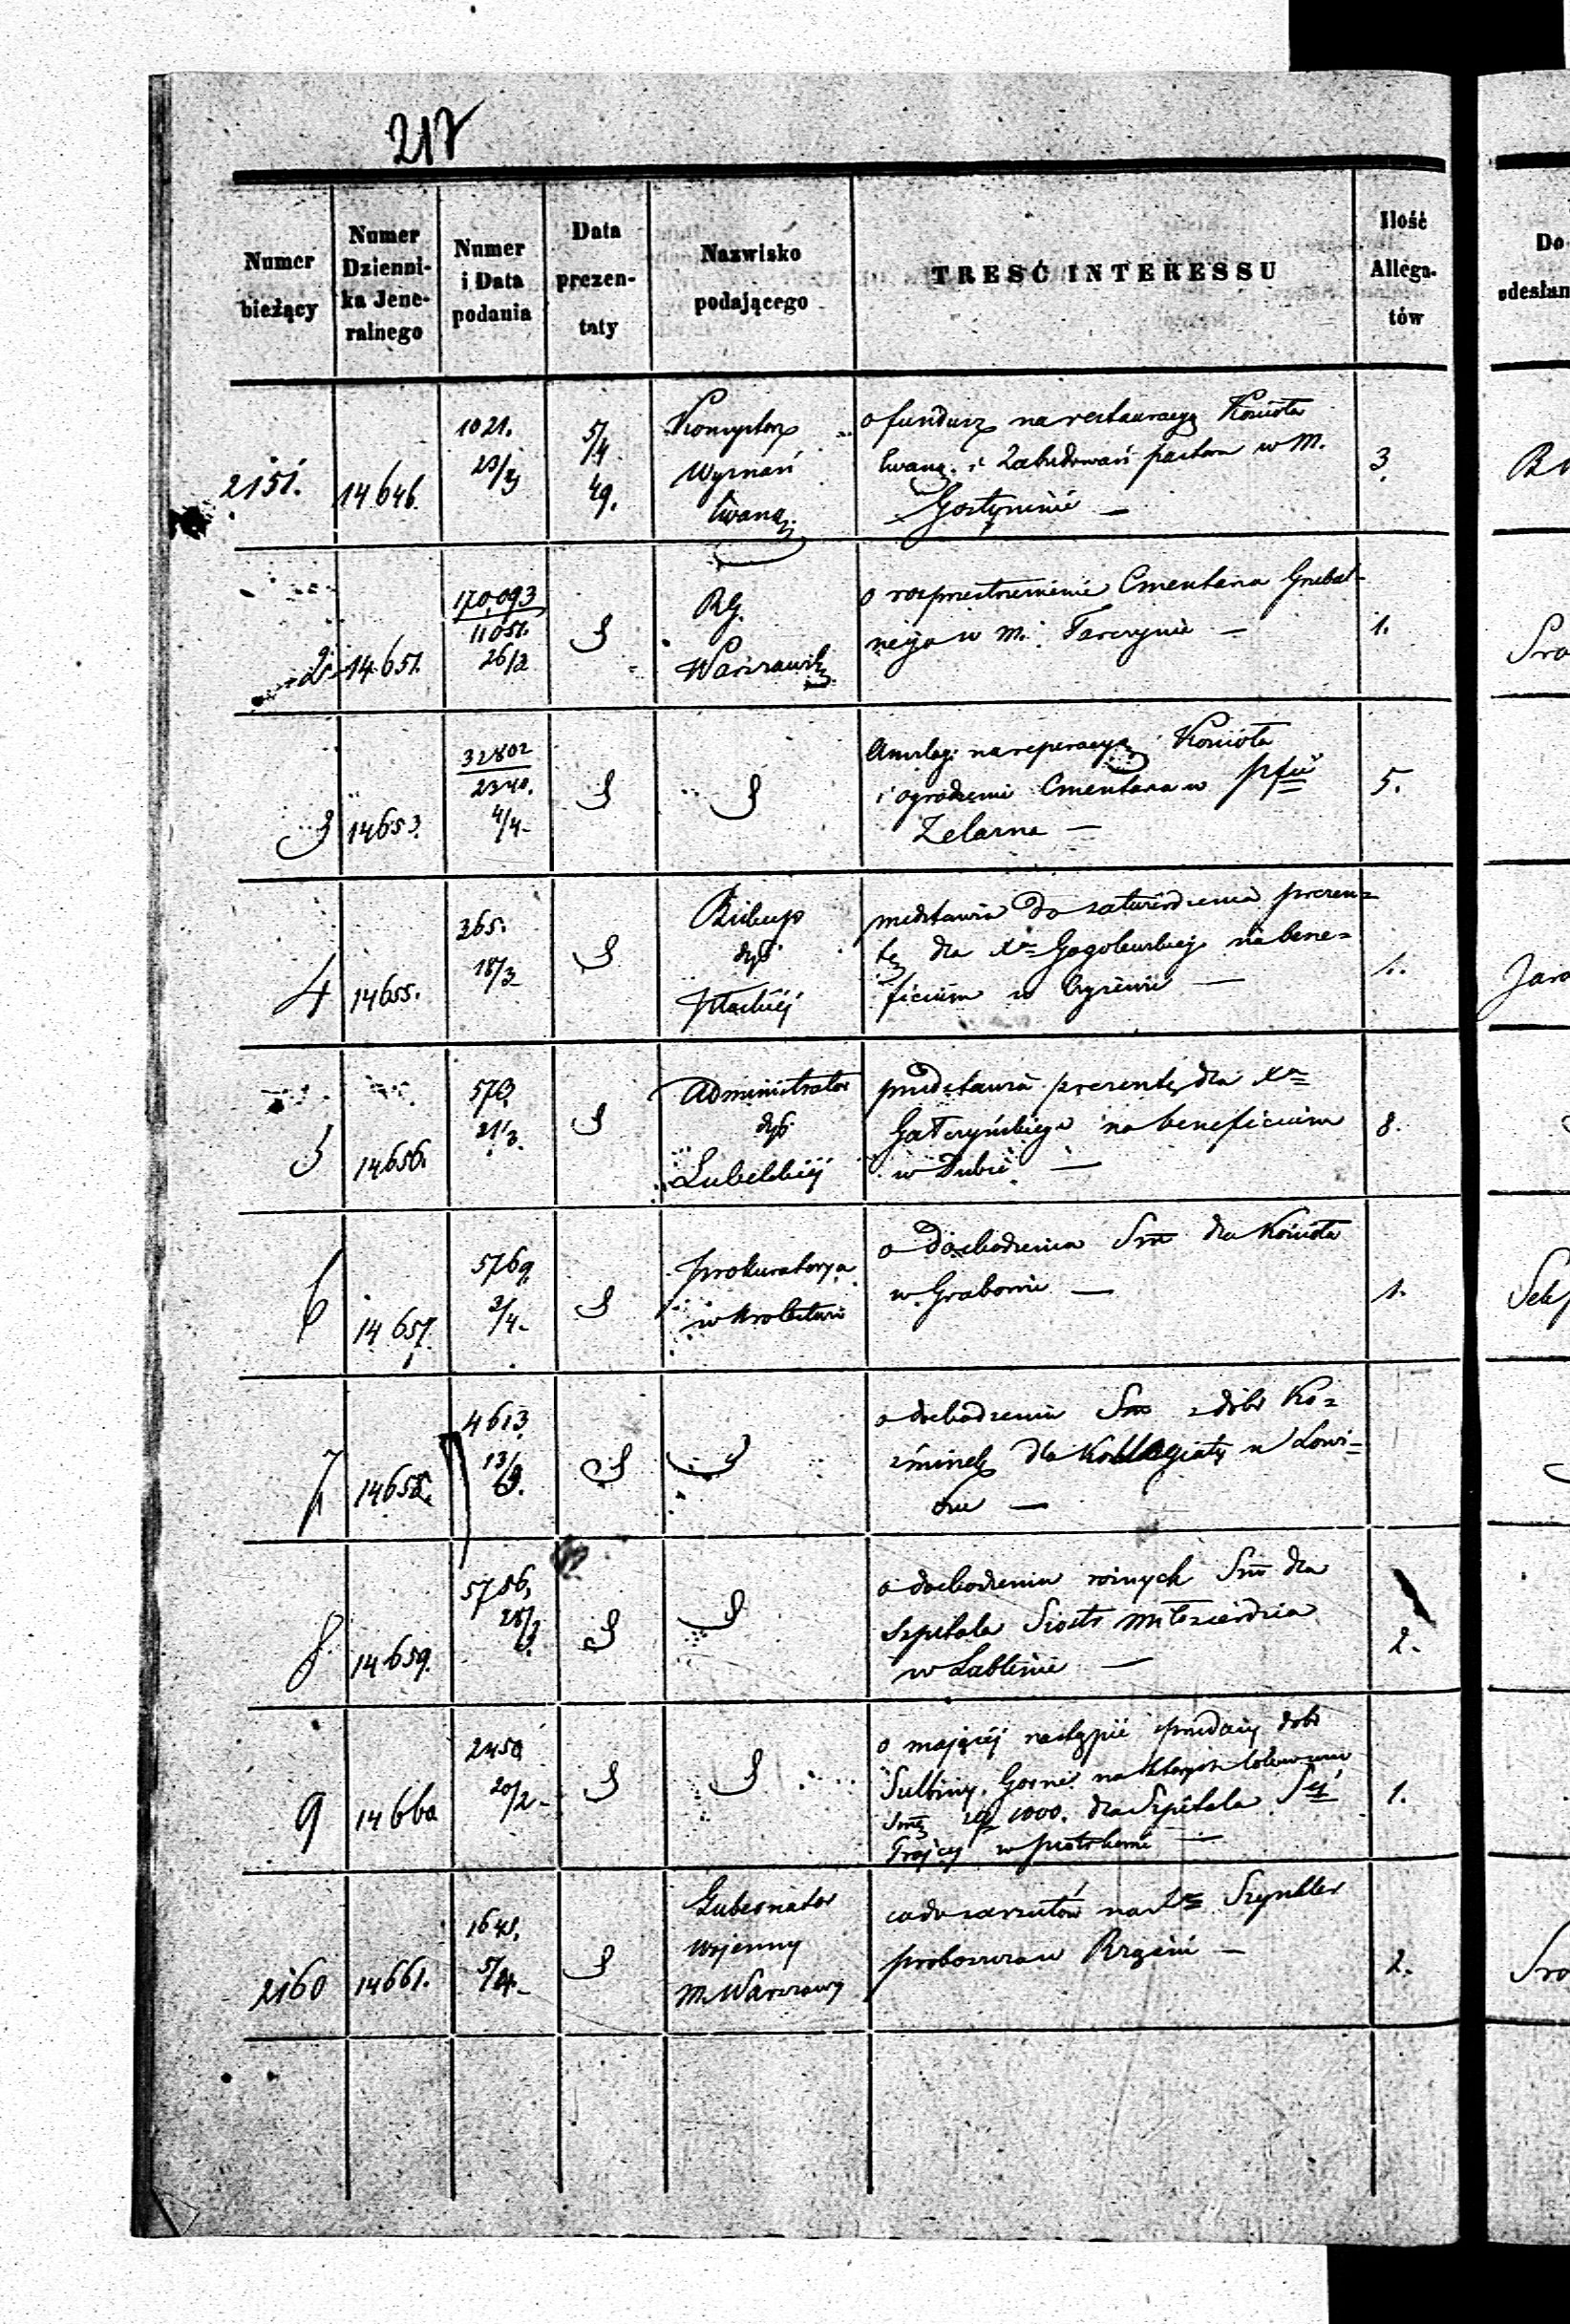 217
Numer bieżący
Numer Dzienni-ka Jene-ralnego
Numer i Data podania
Data prezen-taty
Nazwisko podającego
TREŚĆ INTERESSU
Ilość Allega-tów
Do
odesłan
2151.
14646.
1021.
23/3
5/4
49.
Konsystorz
Wyznań
Ewang.
o fundusz na restauracyą Kościoła
Ewang. i Zabudowań pastora w m.
Gostyninie —
3.
2
14651.
170,093
11051.
26/3
RG.
Warszawsk
o rozprzestrzenienie Cmentarza Grzebal-
nego w m. Tarczynie —
1.
3
14653.
32802
2340.
4/4
Anszlag na reperacyą Kościoła
i ogrodzenie Cmentarza w
Zelazna —
5.
4
14655.
365.
18/3
Biskup
dyc.
Płockiej
przedstawia do zatwierdzenia prezen=
tę dla Xa Gogolewskiego na bene=
ficium w —
1.
5
14656.
570.
21/3.
Administrator
dyc.
Lubelskiej
przedstawia prezentę dla Xa
Gałczyńskiego na beneficium
w Dubie —
8.
6
14657.
5769.
3/4
Prokuratorya
w Królestwie
o dochodzenia Sm dla Kościoła
w Grabowie —
1.
7
14658.
4613.
13/3.
o dochodzeniu Sm z dóbr Ko=
źminek dla Kollegiaty w Łowi=
czu —
8
14659.
5756.
28/3.
o dochodzeniu różnych Sm dla
Szpitala Siostr Miłosierdzia
w Lublinie —
2.
9
14660
2450
20/2
o mającej nastąpić przedaży dóbr
Sulbiny Górne na których lokowane
Smę 1000. dla Szpitala Stéj
Trójcy w Piotrkowie —
1.
2160
14661.
1641.
5/4
Gubernator
Wojenny
M. Warszawy
co do zarzutów na Xa Szynkler
proboszcza w —
2.